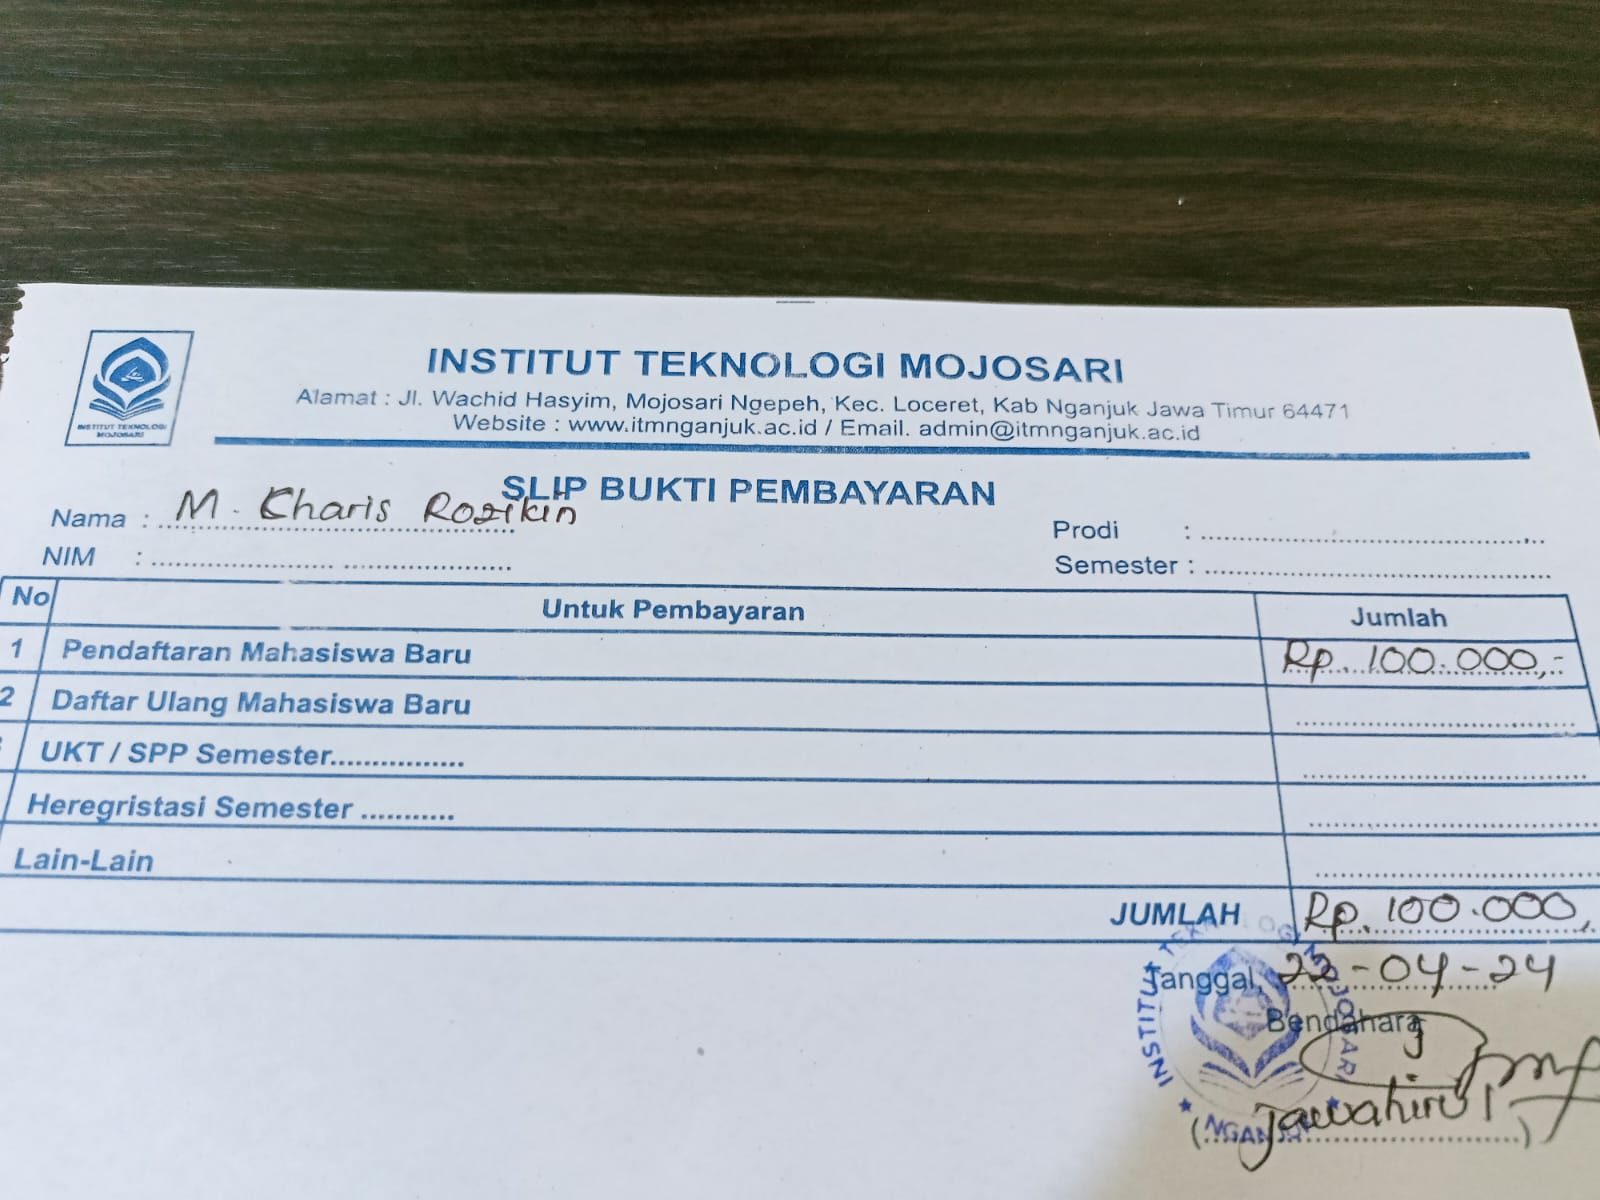 INSTITUT TEKNOLOGI MOJOSARI
Alamat : Jl. Wachid Hasyim, Mojosari Ngepeh, Kec. Loceret, Kab Nganjuk Jawa Timur 64471
Website : www.itmnganjuk.ac.id / Email. admin@itmnganjuk.ac.id
INSTITUT TEKNOLOGI
MOJOSARI
SLIP BUKTI PEMBAYARAN
Nama : M. Charis Rozikin
NIM : ........................................
Prodi : ........................................
Semester : ........................................
No Untuk Pembayaran Jumlah
1 Pendaftaran Mahasiswa Baru Rp. 100.000,-
2 Daftar Ulang Mahasiswa Baru
UKT / SPP Semester................
Heregristasi Semester ...........
Lain-Lain
JUMLAH Rp. 100.000,
Tanggal, 22-04-24
Bendahara
(Jawahirul)
INSTITUT TEKNOLOGI MOJOSARI
NGANJUK